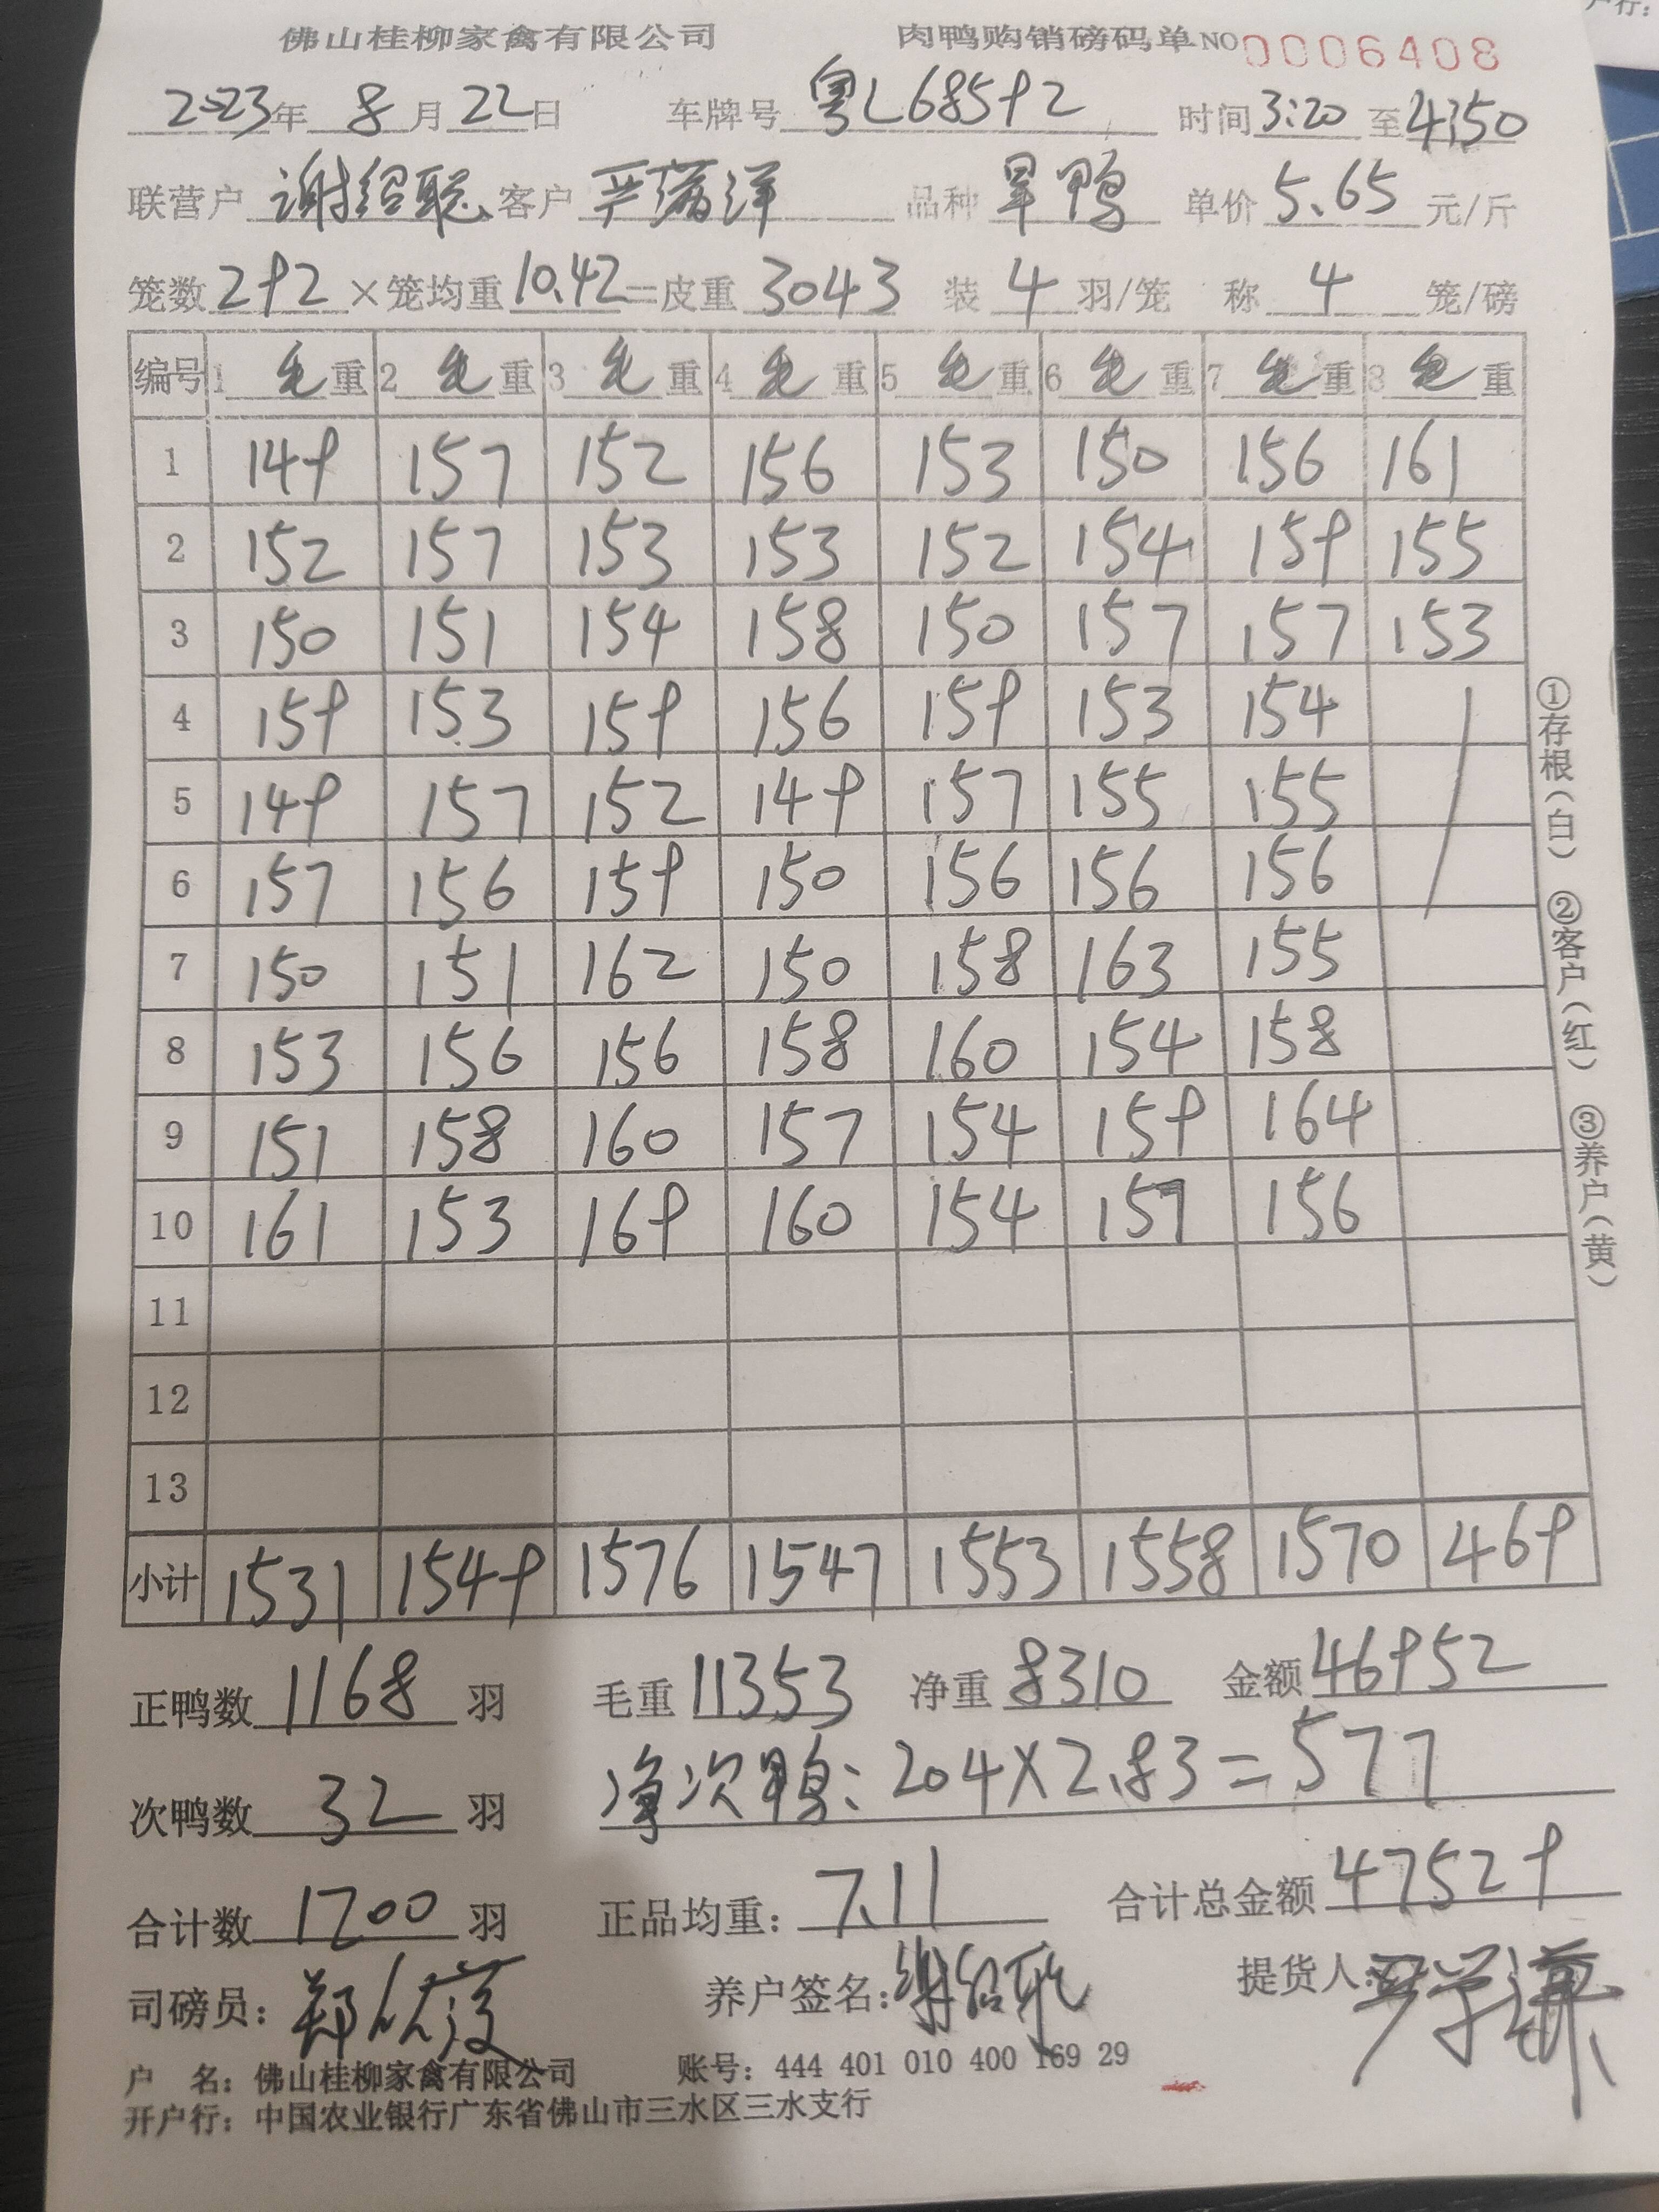 户行:
佛山桂柳家禽有限公司 肉鸭购销磅码单 NO 0006408
2023年 8月22日 车牌号 粤L68592 时间 3:20 至 4:50
联营户 谢绍聪 客户 严满洋 品种 旱鸭 单价 5.65 元/斤
笼数 292 ×笼均重 10.42 =皮重 3043 装 4 羽/笼 称 4 笼/磅
编号 1 毛重 2 毛重 3 毛重 4 毛重 5 毛重 6 毛重 7 毛重 8 毛重
1 149 157 152 156 153 150 156 161
2 152 157 153 153 152 154 159 155
3 150 151 154 158 150 157 157 153
4 159 153 159 156 159 153 154
5 149 157 152 149 157 155 155
6 157 156 159 150 156 156 156
7 150 151 162 150 158 163 155
8 153 156 156 158 160 154 158
9 151 158 160 157 154 159 164
10 161 153 169 160 154 157 156
11
12
13
小计 1531 1549 1576 1547 1553 1558 1570 469
①存根(白) ②客户(红) ③养户(黄)
正鸭数 1168 羽 毛重 11353 净重 8310 金额 46952
次鸭数 32 羽 净次鸭: 204×2.83=577
合计数 1200 羽 正品均重: 7.11 合计总金额 47529
司磅员: 郑 养户签名: 谢绍聪 提货人: 严学谦
户 名: 佛山桂柳家禽有限公司 账号: 444 401 010 400 169 29
开户行: 中国农业银行广东省佛山市三水区三水支行